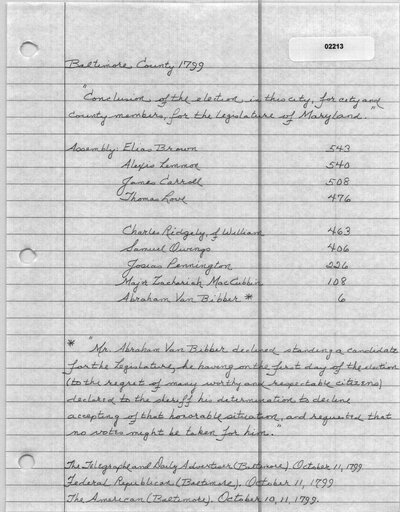 02213
Baltimore County 1799
"Conclusion of the election in this city, for city and
county members, for the legislature of Maryland."
Assembly: Elias Brown 543
Alexis Lemmon 540
James Carroll 508
Thomas Love 476
Charles Ridgely, of William 463
Samuel Owings 406
Josias Pennington 226
Major Zachariah MacCubbin 108
Abraham Van Bibber * 6
* "Mr. Abraham Van Bibber declined standing a candidate
for the Legislature, he having on the first day of the election
(to the regret of many worthy and respectable citizens)
declared to the sheriff his determination to decline
accepting of that honorable situation, and requested that
no votes might be taken for him."
The Telegraphe and Daily Advertiser (Baltimore). October 11, 1799
Federal Republican (Baltimore). October 11, 1799
The American (Baltimore). October 10, 11, 1799.